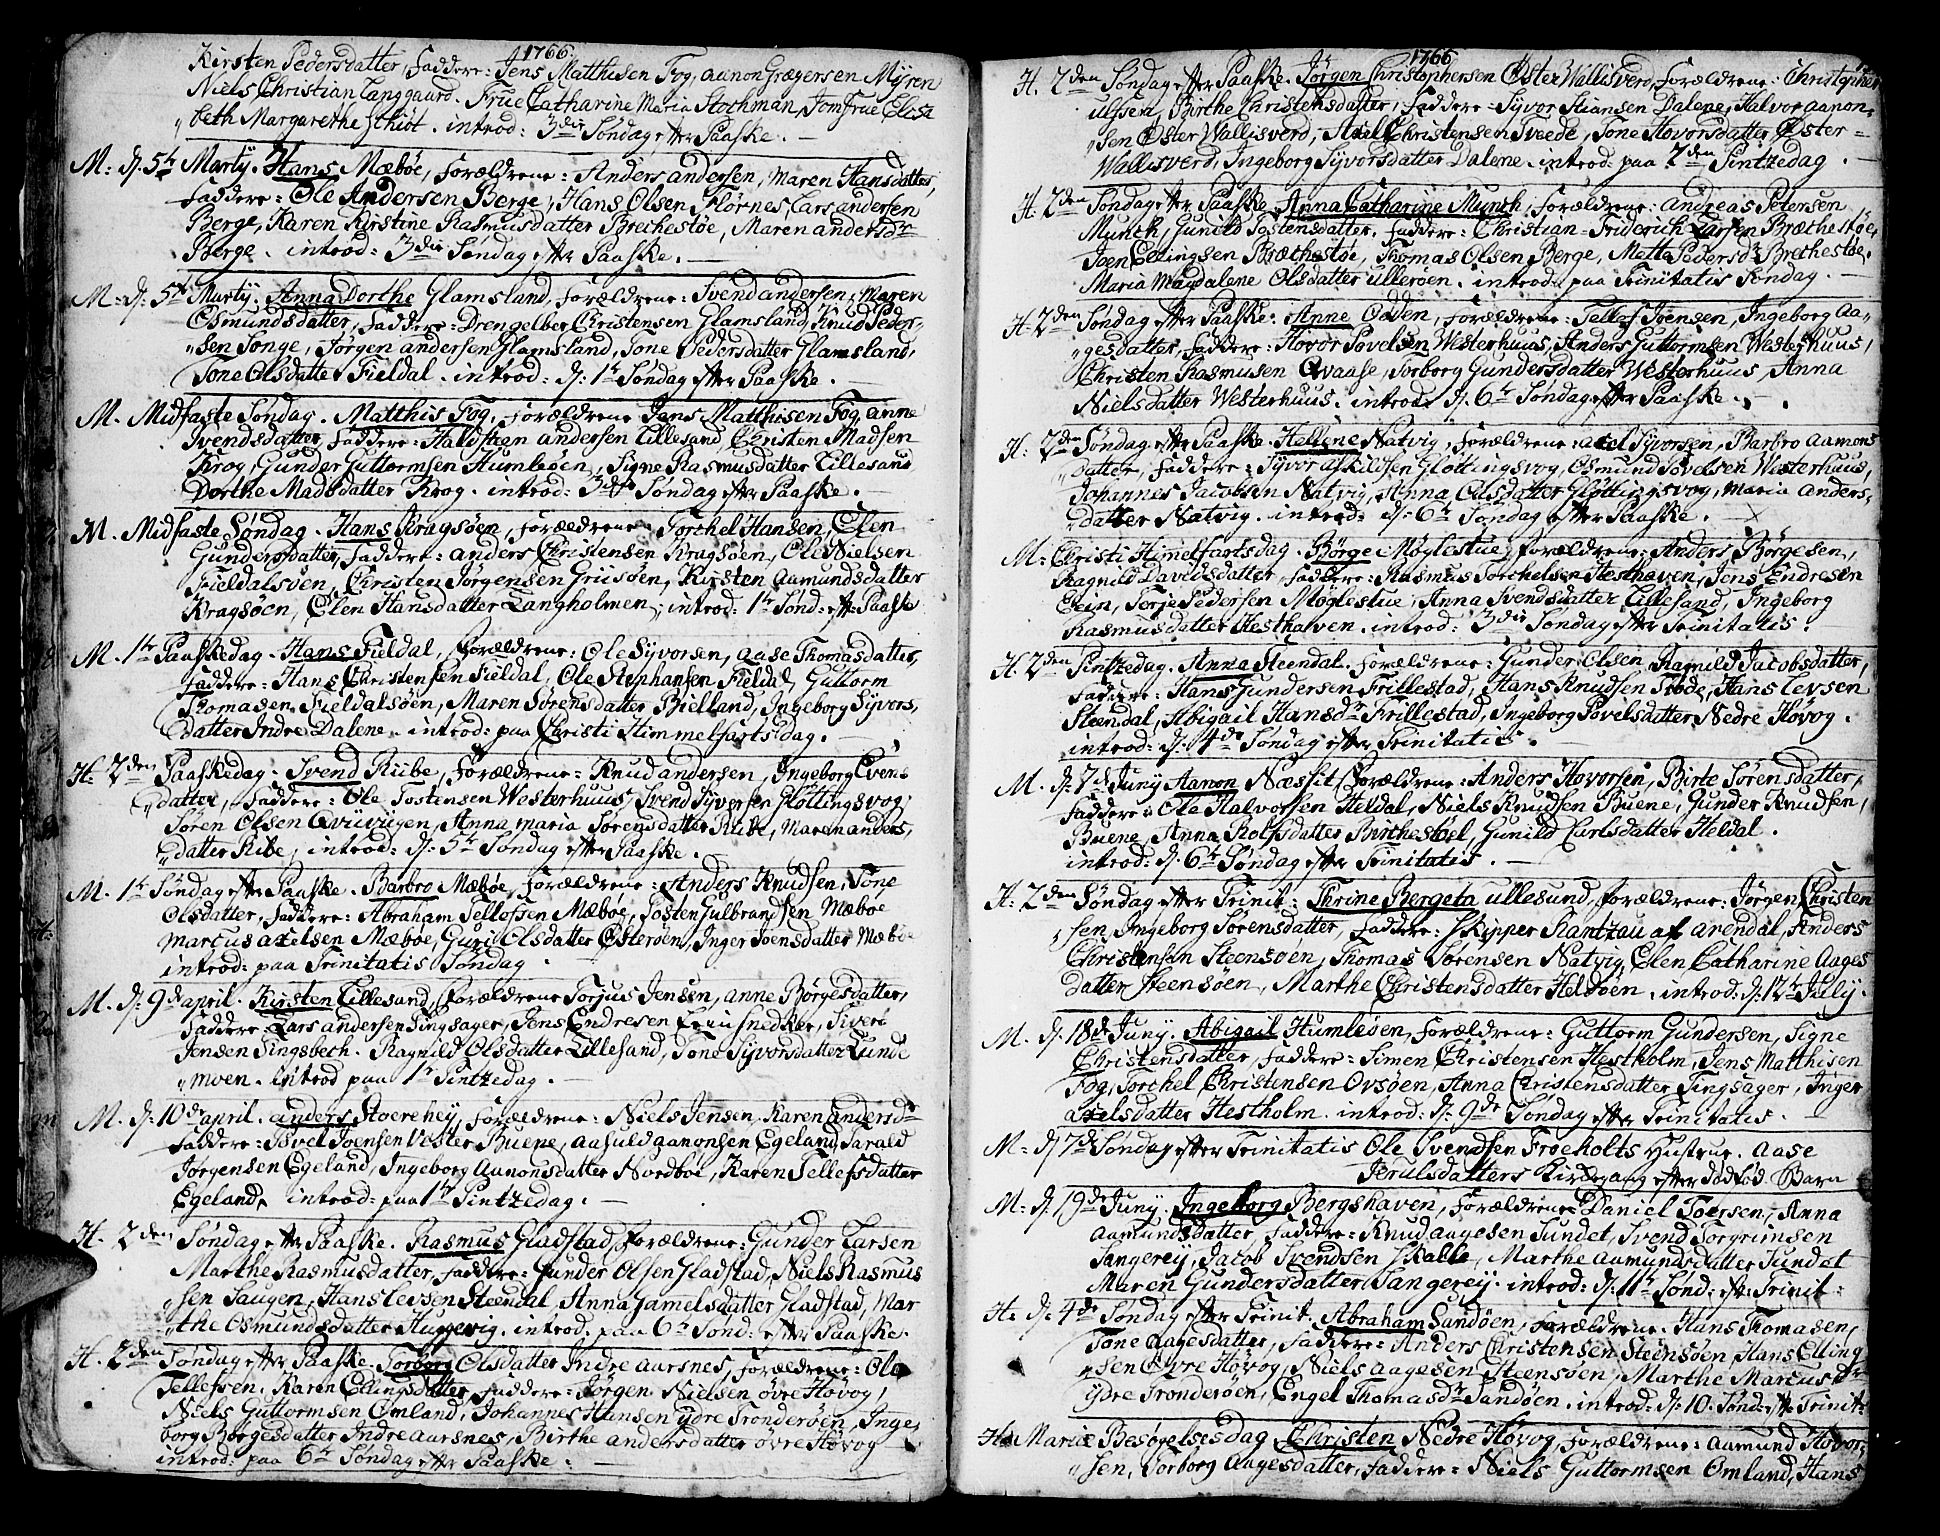 1766.
Kirsten Pedersdatter, Faddere: Jens Matthisen Fog, Aanon Grægersen Myren
Niels Christian Langgaard. Frue Catharine Maria Stochman, Jomfrue Elisa
"beth Margarethe Schiöt. introd: 3die Søndag efter Paaske.
M: d: 5te Martij. Hans Mæbøe, Forældrene: Anders Andersen, Maren Hansdatter,
Faddere: Ole Andersen Berge, Hans Olsen Flørnes, Lars Andersen
Berge, Karen Kirstine Rasmusdatter Brechestøe, Maren Andersdr
Berge. introd: 3die Søndag efter Paaske.
M: d: 5te Martij. Anna Dorthe Glamsland, Forældrene: Svend Andersen, Maren
Osmundsdatter, Faddere: Drengelber Christensen Glamsland, Knud Peder-
"sen Songe, Jørgen Andersen Glamsland, Tone Pedersdatter Glamsland,
Tone Olsdatter Fieldal. introd: d: 1te Søndag efter Paaske.
M. Midfaste Søndag. Matthis Fog, Forældrene Jens Matthisen Fog, Anne
Svendsdatter, Faddere: Haldsteen Andersen Lillesand, Christen Madsen
Krog, Gunder Guttormsen Humleøen, Signe Rasmusdatter Lillesand
Dorthe Madsdatter Krog. introd: 3die Søndag efter Paaske.
M. Midfaste Søndag. Hans Kragsøen, Forældrene: Torchel Hansen, Elen
Gundersdatter, Faddere: Anders Christensen Kragsøen, Ole Nielsen
Fieldalsøen, Christen Jørgensen Griisøen, Kirsten Aamundsdatter
Kragsøen, Elen Hansdatter Langholmen, introd: 1te Sønd: efter Paaske
M. 1te Paaskedag. Hans Fieldal, Forældrene: Ole Syvorsen, Aase Thomasdatter,
Faddere: Hans Christensen Fieldal, Ole Stephansen Fieldal, Guttorm
Thomasen Fieldalsøen, Maren Sørensdatter Bielland, Ingeborg Syvors,
"datter Indre Dalene. introd: paa Christi Himmelfarts dag.
H. 2den Paaskedag. Svend Ribe, Forældrene: Knud Andersen, Ingeborg Evens
"datter, Faddere: Ole Tostensen Westerhuus, Svend Syversen Gløttingsvog,
Søren Olsen Qvivigen, Anna Maria Sørensdatter Ribe, Maren Anders,
"datter Ribe, introd: d: 5te Søndag efter Paaske.
M. 1te Søndag efter Paaske. Barbro Mæbøe, Forældrene: Anders Knudsen, Tone
Olsdatter, Faddere: Abraham Tellefsen Mæbøe, Tosten Gulbrandsen Mæbøe
Marcus Axelsen Mæbøe, Guri Olsdatter Østerøen, Inger Joensdatter Mæbøe
introd: paa Trinitatis Søndag.
M. d: 9de April. Kirsten Lillesand, Forældrene Torjus Jensen, Anne Børgesdatter,
Faddere: Lars Andersen Tingsager, Jens Endresen Snedker, Sivert
Jensen Tingsbeth. Ragnild Olsdatter Lillesand, Tone Syvorsdatter Lunde
"moen. introd paa 1te Pintzedag.
M. d: 10de April. Anders Stoerehey, Forældrene: Niels Jensen, Karen Andersdr
Faddere: Povel Joensen Vester Buene, Aasuld Aanonsen Egeland, Harald
Jørgensen Egeland, Ingeborg Aanonsdatter Nordboe, Karen Tellefsdatter
Egeland, introd: paa 1te Pintzedag.
H. 2den Søndag efter Paaske. Rasmus Gladstad, Forældrene: Gunder Larsen
Marthe Rasmusdatter, Faddere: Gunder Olsen Gladstad, Niels Rasmus
"sen Saugen, Hans Levsen Steendal, Anna Jamelsdatter Gladstad, Mar
"the Osmundsdatter Hugevig. introd. paa 6te Sønd: efter Paaske.
H. 2den Søndag efter Paaske. Torborg Olsdatter Indre Aarsnes, Forældrene: Ole
Tellefsen. Karen Ellingsdatter, Faddere: Jørgen Nielsen øvre Høvog,
Niels Guttormsen Omland, Johannes Hansen ydre Trønderøen, Inge,
borg Børgesdatter Indre Aarsnes, Birthe Andersdatter øvre Høvog
introd: paa 6te Søndag efter Paaske.
1766
H. 2den Søndag efter Paaske. Jørgen Christophersen Øster Wallisverd, Forældrene: Christopher
Ulfsen, Birthe Christensdatter, Faddere: Syvor Stiansen Dalene, Halvor Aanon-
"sen Øster Wallisverd, Axel Christensen Tveede, Tone Hovorsdatter Øster-
Wallisverd, Ingeborg Syvorsdatter Dalene. introd: paa 2den Pintzedag.
H. 2den Søndag efter Paaske. Anna Catharine Munch, Forældrene: Andreas Petersen
Munch, Gunild Tostensdatter. Faddere: Christian Friderich Larsen Bræthestøe,
Joen Ellingsen Bræchestøe, Thomas Olsen Berge, Metta Pedersdr Brechestøe,
Maria Magdalene Olsdatter Ulleröen. introd: paa Trinitatis Søndag.
H. 2den Søndag efter Paaske. Anne Odden, Forældrene: Tellef Joensen, Ingeborg Aa-
"gesdatter, Faddere: Hovor Povelsen Westerhuus, Anders Guttormsen Westerhuus,
Christen Rasmusen Qvaase, Torborg Gundersdatter Westerhuus, Anna
Nielsdatter Westerhuus. introd: d. 6te Søndag efter Paaske.
H. 2den Søndag efter Paaske. Hellene Natvig, Forældrene: Axel Syvorsen, Barbro Aamons
"datter, Faddere: Syvor Askildsen Gløttingsvog, Osmund Povelsen Westerhuus,
Johannes Jacobsen Natvig, Anna Olsdatter Gløttingsvog, Maria Anders,
"datter Natvig. introd: d: 6te Søndag efter Paaske.
M: Christi Himelfartsdag. Børge Møglestue, Forældrene: Anders Børgesen,
Ragnild Davidsdatter, Faddere: Rasmus Torchelsen Hesthaven, Jens Endresen
Terje Pedersen Møglestue, Anna Svendsdatter Lillesand, Ingeborg
Rasmusdatter Hesthaven. introd: 3die Søndag efter Trinitatis.
H. 2den Pintzedag. Anna Steendal. Forældrene: Gunder Olsen, Ragnild Jacobsdatter,
Faddere: Hans Gundersen Frillestad, Hans Knudsen Trøde, Hans Levsen
Steendal, Abigail Hansdr Frillestad, Ingeborg Povelsdatter Nedre Høvog.
introd: d: 4de Søndag efter Trinitatis.
M. d: 7de Juny Aanon Næssit, Forældrene: Anders Hovorsen, Birte Sørensdatter,
Faddere: Ole Halvorsen Heldal, Niels Knudsen Buene, Gunder Knudsen,
Buene, Anna Rolfsdatter Birchestøel, Gunild Carlsdatter Heldal.
introd: d. 6te Søndag efter Trinitatis.
H. 2den Søndag efter Trinit: Thrine Bergeta Ullesund, Forældrene: Jørgen Christen
"sen, Ingeborg Sørensdatter, Faddere: Skipper Rantzau af Arendal, Anders
Christensen Steensøen, Thomas Sørensen Natvig, Elen Catharine Aages
datter Steensøen, Marthe Christensdatter Heldøen. introd: d: 12te Julij.
M. d. 18de Juny. Abigail Humleøen, Forældrene: Guttorm Gundersen, Signe
Christensdatter, Faddere: Simen Christensen Hestholm, Jens Matthisen
Fog, Torchel Christensen Ovsøen, Anna Christensdatter Tingsager, Inger
Axelsdatter Hestholm. introd: d: 9de Søndag efter Trinitatis.
M: d 7de Søndag efter Trinitatis Ole Svendsen Froeholts Hustrue. Aase
Jerulsdatters Kirkegang efter dødfød Barn
M: d. 19de Juny. Ingeborg Bergshaven, Forældrene Daniel Toersen, Anna
Aamundsdatter, Faddere: Knud Aagesen Sundet, Svend Torgrimsen
Sangerey, Jacob Svendsen Skalle, Marthe Aamundsdatter Sundet
Maren Gundersdatter Sangerey. introd: d: 11te Sønd: eft: Trinit:
H: d: 4de Søndag efter Trinit. Abraham Sandøen, Forældrene: Hans Thomasen,
Tone Aagesdatter, Faddere: Anders Christensen Steensøen, Hans Elling
"sen Øvre Høvog, Niels Aagesen Steensøen, Marthe Marcusdr
Ydre Trønderøen, Engel Thomasdr Sandøen. introd: d: 10. Sønd: eft Trinit:
H. Mariæ Besøgelsesdag Christen Nedre Høvog, Forældrene: Aamund Hovor-
"sen, Torborg Aagesdatter, Faddere: Niels Guttormsen Omland, Hans